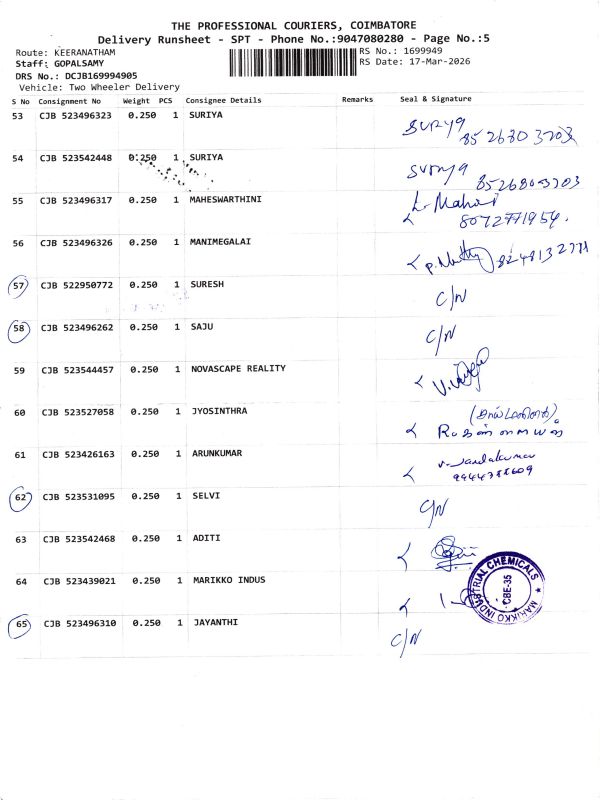 THE PROFESSIONAL COURIERS, COIMBATORE
Delivery Runsheet - SPT - Phone No.:9047080280 - Page No.:5
Route: KEERANATHAM
RS No.: 1699949
Staff: GOPALSAMY
RS Date: 17-Mar-2026
DRS No.: DCJB169994905
Vehicle: Two Wheeler Delivery
S No Consignment No Weight PCS Consignee Details Remarks Seal & Signature
53 CJB 523496323 0.250 1 SURIYA
surya 8526803703
54 CJB 523542448 0:250 1 SURIYA
surya 8526803703
55 CJB 523496317 0.250 1 MAHESWARTHINI
8072771954.
56 CJB 523496326 0.250 1 MANIMEGALAI
57 CJB 522950772 0.250 1 SURESH
C/N
58 CJB 523496262 0.250 1 SAJU
C/N
59 CJB 523544457 0.250 1 NOVASCAPE REALITY
60 CJB 523527058 0.250 1 JYOSINTHRA
61 CJB 523426163 0.250 1 ARUNKUMAR
62 CJB 523531095 0.250 1 SELVI
C/N
63 CJB 523542468 0.250 1 ADITI
64 CJB 523439021 0.250 1 MARIKKO INDUS
MARIKKO INDUSTRIAL CHEMICALS
CBE-35
65 CJB 523496310 0.250 1 JAYANTHI
C/N